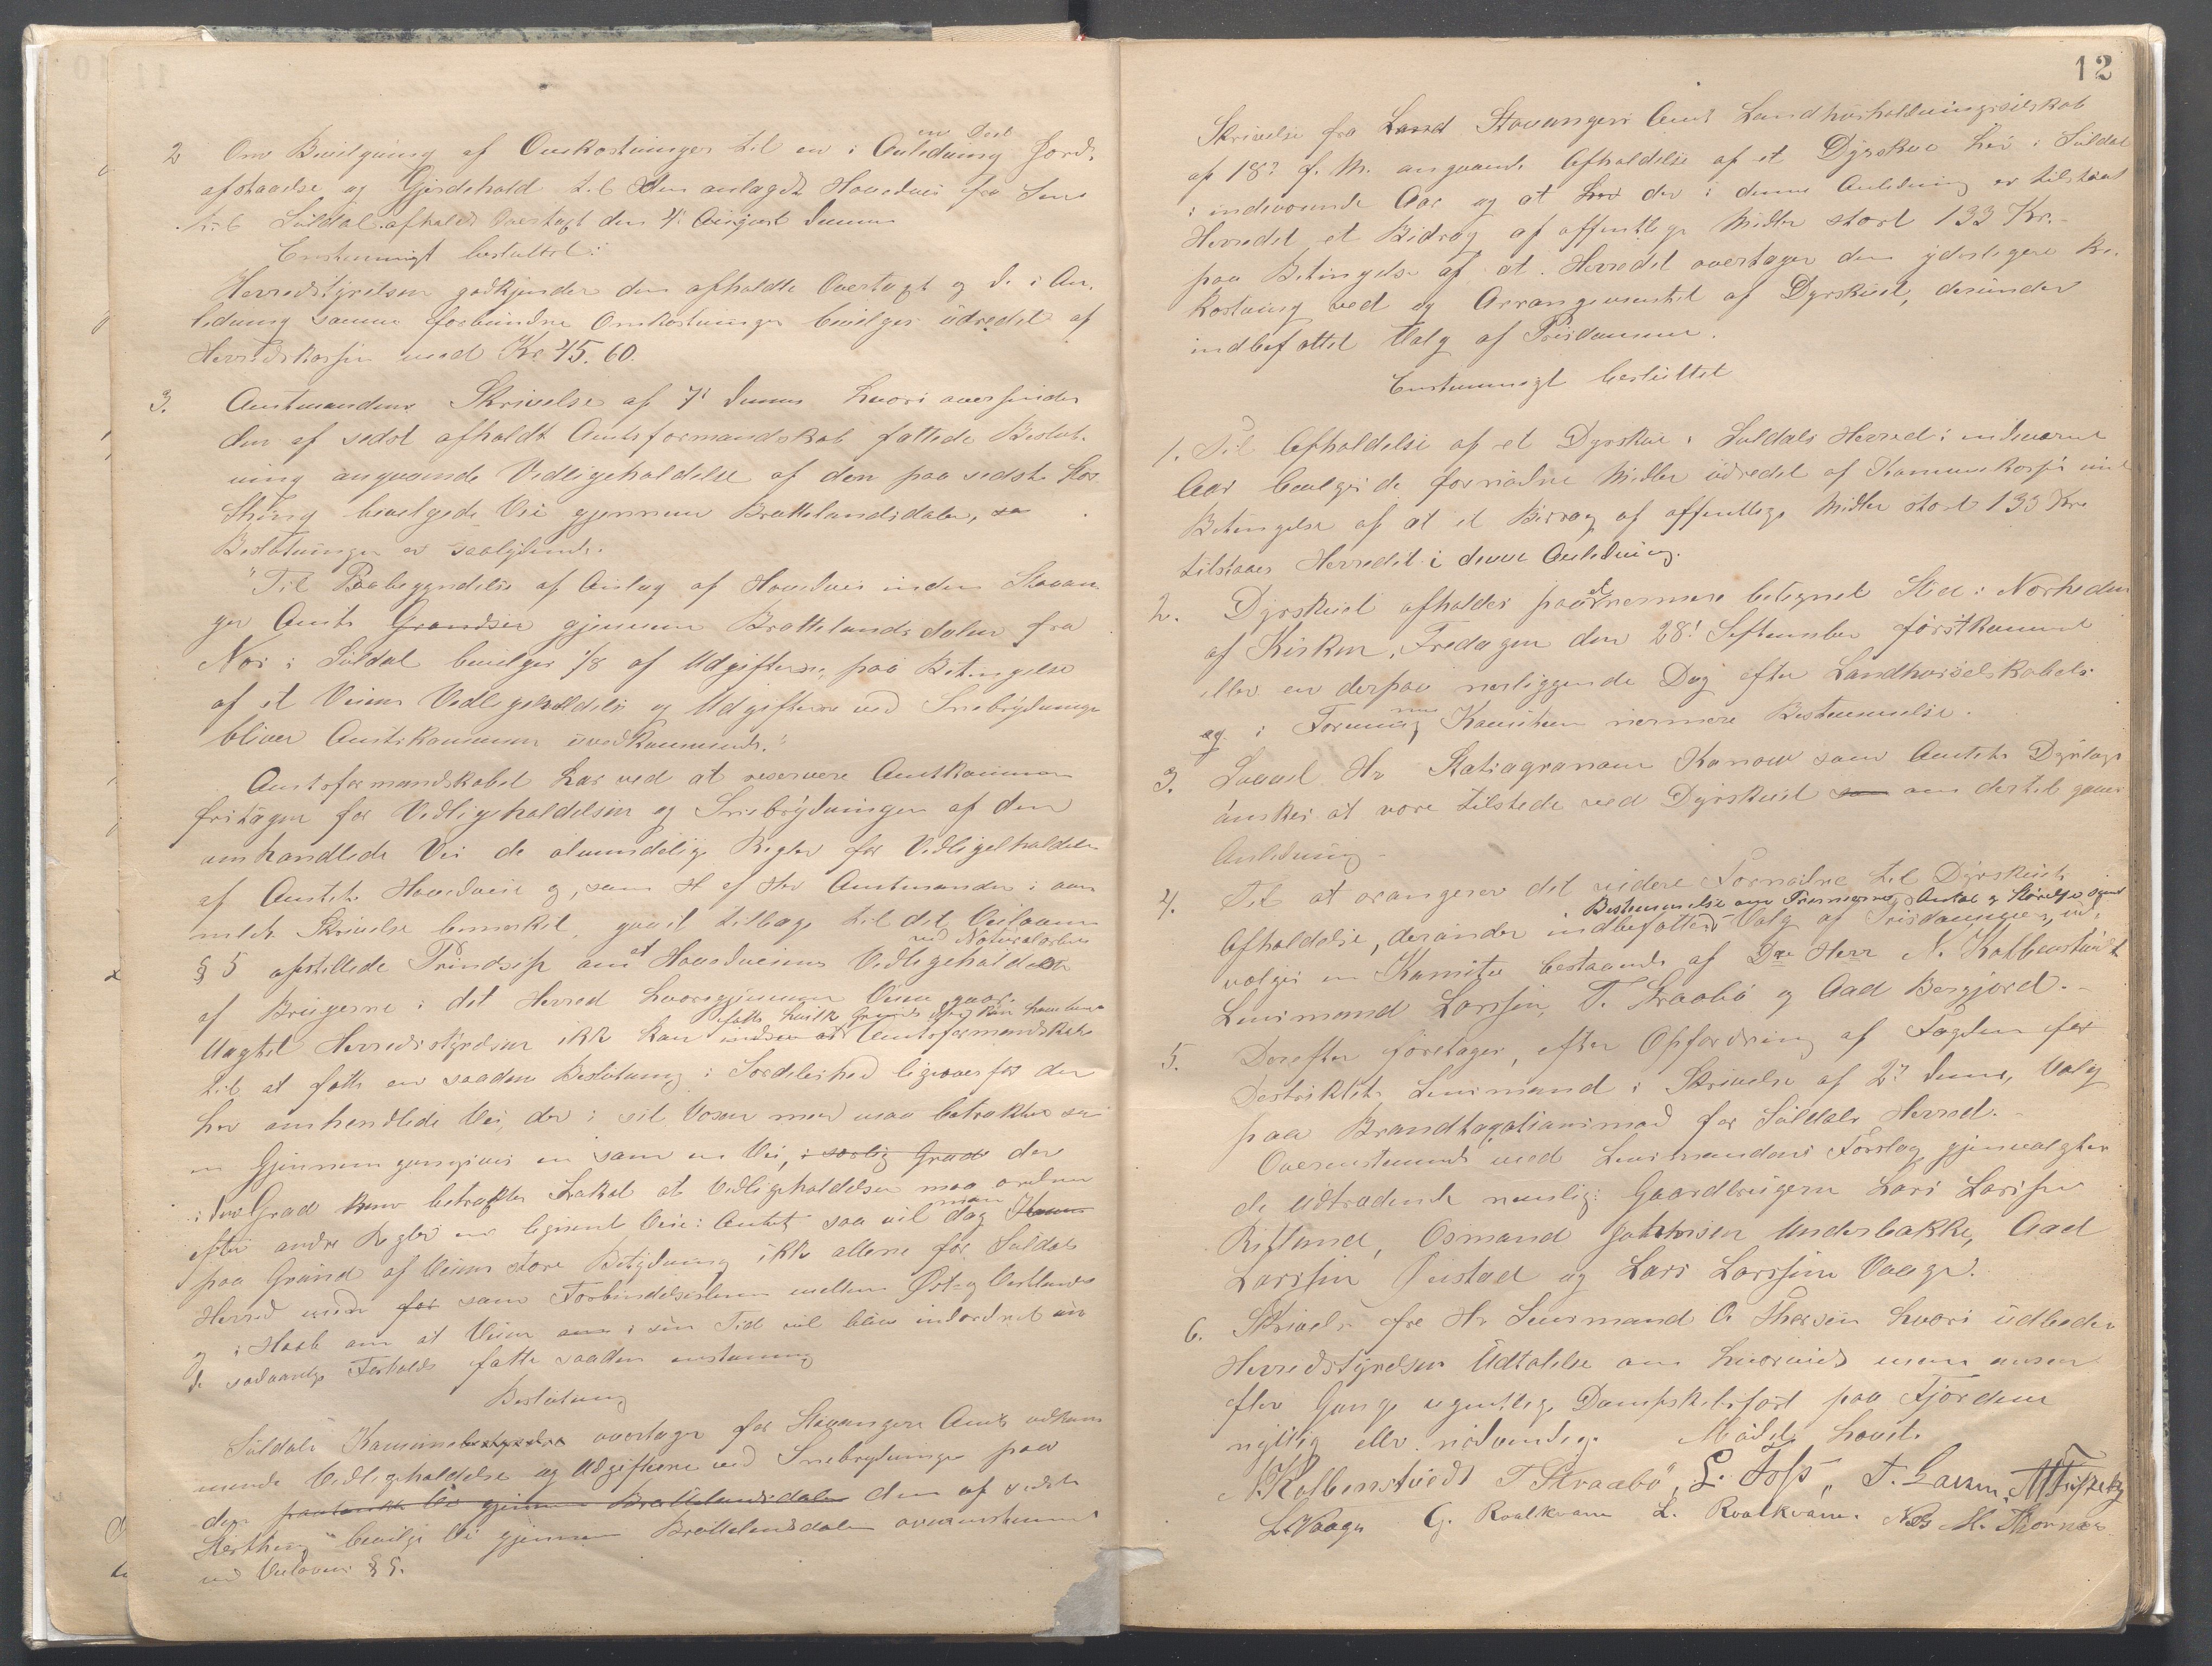 2 Om Bevilgning af Omkostninger til en i Anledning Jord-
en Deel
afstaaelse og Gjerdehold til den anlagte Hovedvei fra Sand
til Suldal afholdt Overtagt den 4de August dennes
Enstemmigt besluttet:
Herredstyrelsen godkjender den afholdte Overtagt og de i An-
ledning samme forbundne Omkostninger bevilges udredet af
Herredskassen med Kr 45.60.
3. Amtmandens Skrivelse af 7de dennes hvori oversendes
den af sidst afholdt Amtsformandskab fattede Beslut-
ning angaaende Vedligeholdelse af den paa sidste Stor-
thing bevilgede Vei gjennem Brattelandsdalen, so
Beslutningen er saalydende:
"Til Paabegyndelse af Anlæg af Hovedvei inden Stavan-
ger Amts Grændser gjennem Brattelandsdalen fra
Næs i Suldal bevilges 1/8 af Udgifterne, paa Betingelse
af at Veiens Vedligeholdelse og Udgifterne ved Snebrydninger
bliver Amtskommunen uvedkommende."
Amtsformandskabet har ved at reservere Amtskommunen
fritagen for Vedligeholdelsen og Snebrydningen af den
omhandlede Vei de almindelige Regler for Vedligeholdelsen
af Amtets Hovedveie og, som H af Hr Amtmanden i oven-
meldte Skrivelse bemerket, gaaet tilbage til det Veilovens
ved Naturalarbeide
§ 5 opstillede Prindsip om at Hovedveiens Vedligeholdelse
af Brugerne i det Herred hvorigjennem Veien gaar.
fatte hvilke Grunde der kan have bevæget
Uagtet Herredsstyrelsen ikke kan indsee at Amtsformandskabet
til at fatte en saadan Beslutning i Særdeleshed ligeoverfor den
her omhandlede Vei, der i sit Væsen mer maa betragtes som
en Gjennemgangsvei en som en Vei, i særlig Grad der
i den Grad kun betragtes lokal at Vedligeholdelsen maa ordnes
efter andre Regler end lignende Veie i Amtet saa vil man dog Herre
paa Grund af Veiens store Betydning ikke allene for Suldals
Herred men for som Forbindelseslinie mellem Øst og Vestlandet
og i Haab om at Veien om i sin Tid vil blive indordnet under
de sædvanlige Forholds fatte saadan enstemmig
Beslutning
Suldals Kommunebestyrelse overtager for Stavangers Amts vedkom-
mende Vedligeholdelse og Udgifterne ved Snebrydninger paa
den paatænkte Vei gjennem Brattelandsdalen den af sidste
Storthing bevilgede Vei gjennem Brattelandsdalen overensstemmende
med Veilovens § 5.
12
Skrivelse fra Land Stavangers Amts Landhusholdningsselskab
af 18de f. M. angaaende Afholdelse af et Dyrskue her i Suldal
i indeværende Aar og at her der i denne Anledning er tilstaaet
Herredet et Bidrag af offentlige Midler stort 133 Kr.-
paa Betingelse af at Herredet overtager den yderligere Be-
kostning ved og Arrangementet af Dyrskuet, derunder
indbefattet Valg af Prisdommere.
Enstemmigt besluttet
1. Til Afholdelse af et Dyrskue i Suldals Herred i indeværende
Aar bevilges de fornødne Midler udredet af Kommunekassen imod
Betingelse af at et Bidrag af offentlige Midler stort 133 Kr
tilstaaes Herredet i denne Anledning.
2. Dyrskuet afholdes paa et nærmere betegnet Sted i Nærheden
af Kirken, Fredagen den 28de September førstkommende
eller en derpaa nærliggende Dag efter Landhusselskabets
og i Forening med Komiteen nærmere Bestemmelse.
3. Saavel Hr Statsagronom Kanow som Amtets Dyrlæge
ønskes at være tilstede ved Dyrskuet som om dertil gives
Anledning -
4. Til at arrangere det videre Fornødne til Dyrskuets
Bestemmelse om Præmiernes Antal og Størrelse
Afholdelse, derunder indbefattet Valg af Prisdommere, ud-
vælges en Komite bestaaende af Dhr Herr N. Kolbenstvedt
Lensmand Larssen, T. Straabø og Aad Bergjord.-
5. Derefter foretages, efter Opfordring af Fogden for
Destriktets Lensmand i Skrivelse af 2de dennes, Valg
paa Brandtaxationsmænd for Suldals Herred.-
Overensstemmende med Lensmandens Forslag gjenvalgtes
de Udtrædende nemlig: Gaardbrugerne Lars Larssen
Ritland, Osmund Gautesen Underbakke, Aad
Larssen Gustad og Lars Larssen Vaage.
6. Skrivelse fra Hr Lensmand O Thesen hvori udbedes
Herredsstyrelsens Udtalelse om hvorvidt man anser
flere Gange ugentlige Dampskibsfart paa Fjordene
nyttig eller nødvendig. Mødet hævet.
N Kolbenstvedt T Straabø L. Foss T. Larsen
L. Vaage G. Roalkvam L. Roalkvam. Nels M. Thornæs